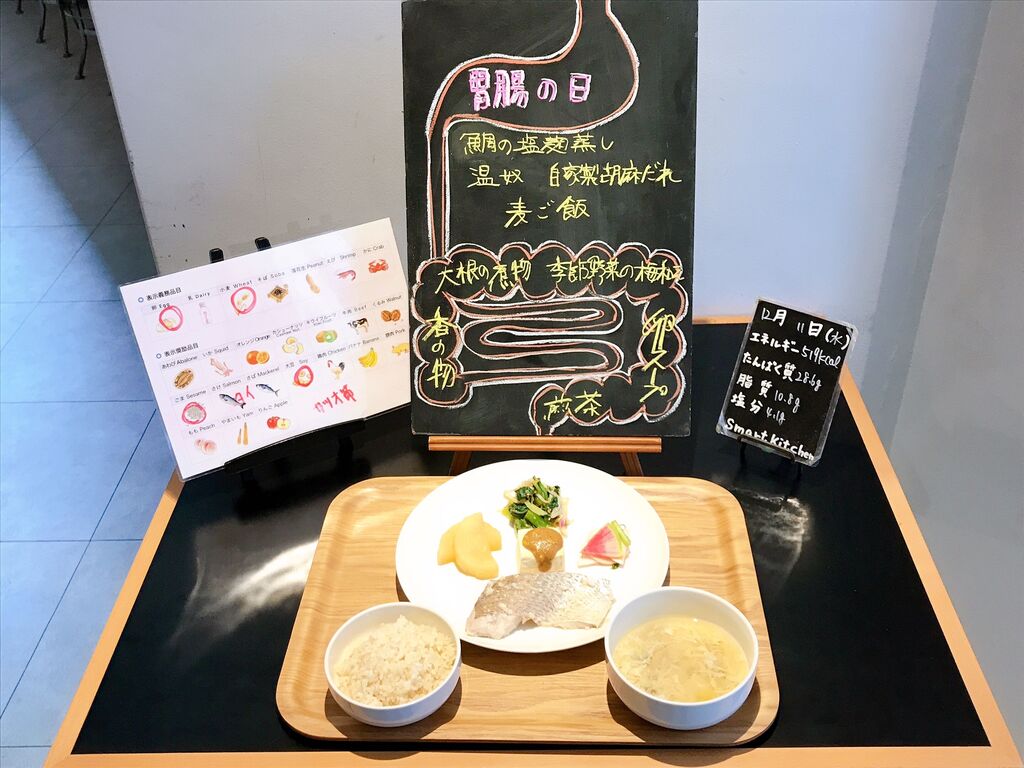 胃腸の日
鯛の塩麹蒸し
温奴 自家製胡麻だれ
麦ご飯
大根の煮物 季節野菜の梅和え
香の物
卵スープ
煎茶
表示義務品目
卵 Egg
乳 Dairy
小麦 Wheat
そば Soba
落花生 Peanut
えび Shrimp
かに Crab
表示奨励品目
あわび Abalone
いか Squid
オレンジ Orange
カシューナッツ
キウイフルーツ
牛肉 Beef
くるみ Walnut
ごま Sesame
さけ Salmon
さば Mackerel
大豆 Soy
鶏肉 Chicken
バナナ Banana
豚肉 Pork
もも Peach
やまいも Yam
りんご Apple
タイ
12月11日(水)
エネルギー519kcal
たんぱく質28.6g
脂質10.8g
塩分4.1g
Smart Kitchen